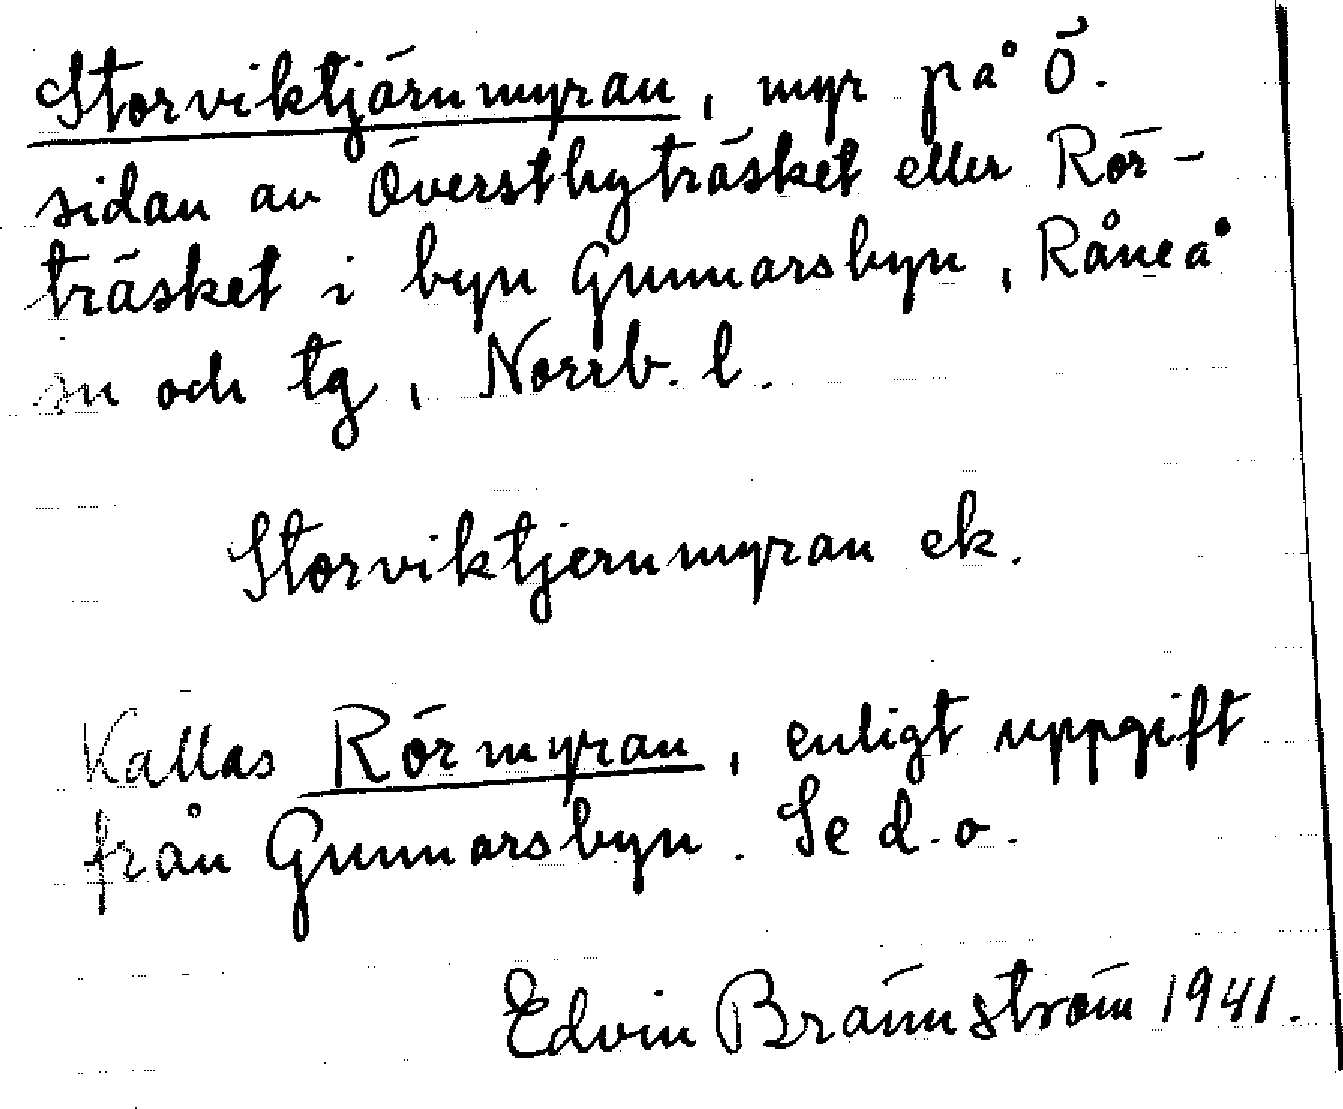 Storviktjärnmyran, myr på Ö.
sidan av Överstbyträsket eller Rör-
träsket i byn Gunnarsbyn, Råneå
sn och tg, Norrb. l.
Storviktjernmyran ek.
Kallas Rörmyran, enligt uppgift
från Gunnarsbyn. Se d.o.
Edvin Brännström 1941.